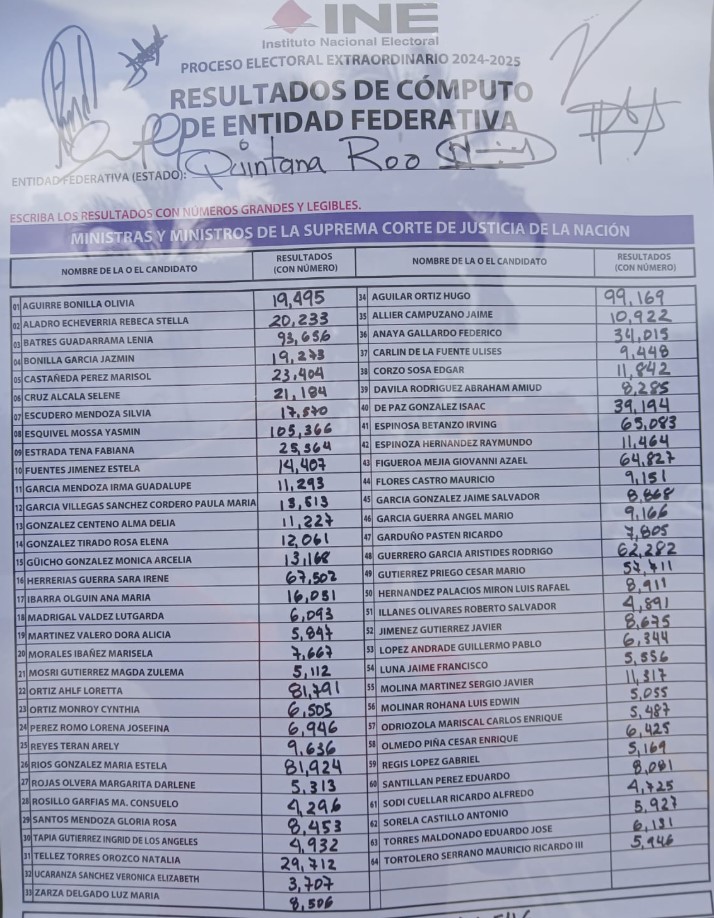 INE
Instituto Nacional Electoral
PROCESO ELECTORAL EXTRAORDINARIO 2024-2025
RESULTADOS DE CÓMPUTO
DE ENTIDAD FEDERATIVA
ENTIDAD FEDERATIVA (ESTADO): Quintana Roo
ESCRIBA LOS RESULTADOS CON NÚMEROS GRANDES Y LEGIBLES.
MINISTRAS Y MINISTROS DE LA SUPREMA CORTE DE JUSTICIA DE LA NACIÓN
NOMBRE DE LA O EL CANDIDATO RESULTADOS (CON NÚMERO) NOMBRE DE LA O EL CANDIDATO RESULTADOS (CON NÚMERO)
01 AGUIRRE BONILLA OLIVIA 19,495
02 ALADRO ECHEVERRIA REBECA STELLA 20,233
03 BATRES GUADARRAMA LENIA 93,656
04 BONILLA GARCIA JAZMIN 19,273
05 CASTAÑEDA PEREZ MARISOL 23,404
06 CRUZ ALCALA SELENE 21,184
07 ESCUDERO MENDOZA SILVIA 17,570
08 ESQUIVEL MOSSA YASMIN 105,366
09 ESTRADA TENA FABIANA 25,564
10 FUENTES JIMENEZ ESTELA 14,407
11 GARCIA MENDOZA IRMA GUADALUPE 11,293
12 GARCIA VILLEGAS SANCHEZ CORDERO PAULA MARIA 13,513
13 GONZALEZ CENTENO ALMA DELIA 11,227
14 GONZALEZ TIRADO ROSA ELENA 12,061
15 GÜICHO GONZALEZ MONICA ARCELIA 13,168
16 HERRERIAS GUERRA SARA IRENE 67,502
17 IBARRA OLGUIN ANA MARIA 16,051
18 MADRIGAL VALDEZ LUTGARDA 6,093
19 MARTINEZ VALERO DORA ALICIA 5,847
20 MORALES IBAÑEZ MARISELA 7,667
21 MOSRI GUTIERREZ MAGDA ZULEMA 5,112
22 ORTIZ AHLF LORETTA 81,791
23 ORTIZ MONROY CYNTHIA 6,505
24 PEREZ ROMO LORENA JOSEFINA 6,946
25 REYES TERAN ARELY 9,636
26 RIOS GONZALEZ MARIA ESTELA 81,924
27 ROJAS OLVERA MARGARITA DARLENE 5,313
28 ROSILLO GARFIAS MA. CONSUELO 4,296
29 SANTOS MENDOZA GLORIA ROSA 8,453
30 TAPIA GUTIERREZ INGRID DE LOS ANGELES 4,932
31 TELLEZ TORRES OROZCO NATALIA 29,712
32 UCARANZA SANCHEZ VERONICA ELIZABETH 3,707
33 ZARZA DELGADO LUZ MARIA 8,506
34 AGUILAR ORTIZ HUGO 99,169
35 ALLIER CAMPUZANO JAIME 10,922
36 ANAYA GALLARDO FEDERICO 34,015
37 CARLIN DE LA FUENTE ULISES 9,448
38 CORZO SOSA EDGAR 11,842
39 DAVILA RODRIGUEZ ABRAHAM AMIUD 8,285
40 DE PAZ GONZALEZ ISAAC 39,194
41 ESPINOSA BETANZO IRVING 65,083
42 ESPINOZA HERNANDEZ RAYMUNDO 11,464
43 FIGUEROA MEJIA GIOVANNI AZAEL 64,827
44 FLORES CASTRO MAURICIO 9,151
45 GARCIA GONZALEZ JAIME SALVADOR 8,868
46 GARCIA GUERRA ANGEL MARIO 9,166
47 GARDUÑO PASTEN RICARDO 7,805
48 GUERRERO GARCIA ARISTIDES RODRIGO 62,282
49 GUTIERREZ PRIEGO CESAR MARIO 57,711
50 HERNANDEZ PALACIOS MIRON LUIS RAFAEL 8,911
51 ILLANES OLIVARES ROBERTO SALVADOR 4,891
52 JIMENEZ GUTIERREZ JAVIER 8,675
53 LOPEZ ANDRADE GUILLERMO PABLO 6,344
54 LUNA JAIME FRANCISCO 5,556
55 MOLINA MARTINEZ SERGIO JAVIER 11,317
56 MOLINAR ROHANA LUIS EDWIN 5,055
57 ODRIOZOLA MARISCAL CARLOS ENRIQUE 5,487
58 OLMEDO PIÑA CESAR ENRIQUE 6,425
59 REGIS LOPEZ GABRIEL 5,169
60 SANTILLAN PEREZ EDUARDO 8,081
61 SODI CUELLAR RICARDO ALFREDO 4,725
62 SORELA CASTILLO ANTONIO 5,927
63 TORRES MALDONADO EDUARDO JOSE 6,131
64 TORTOLERO SERRANO MAURICIO RICARDO III 5,946